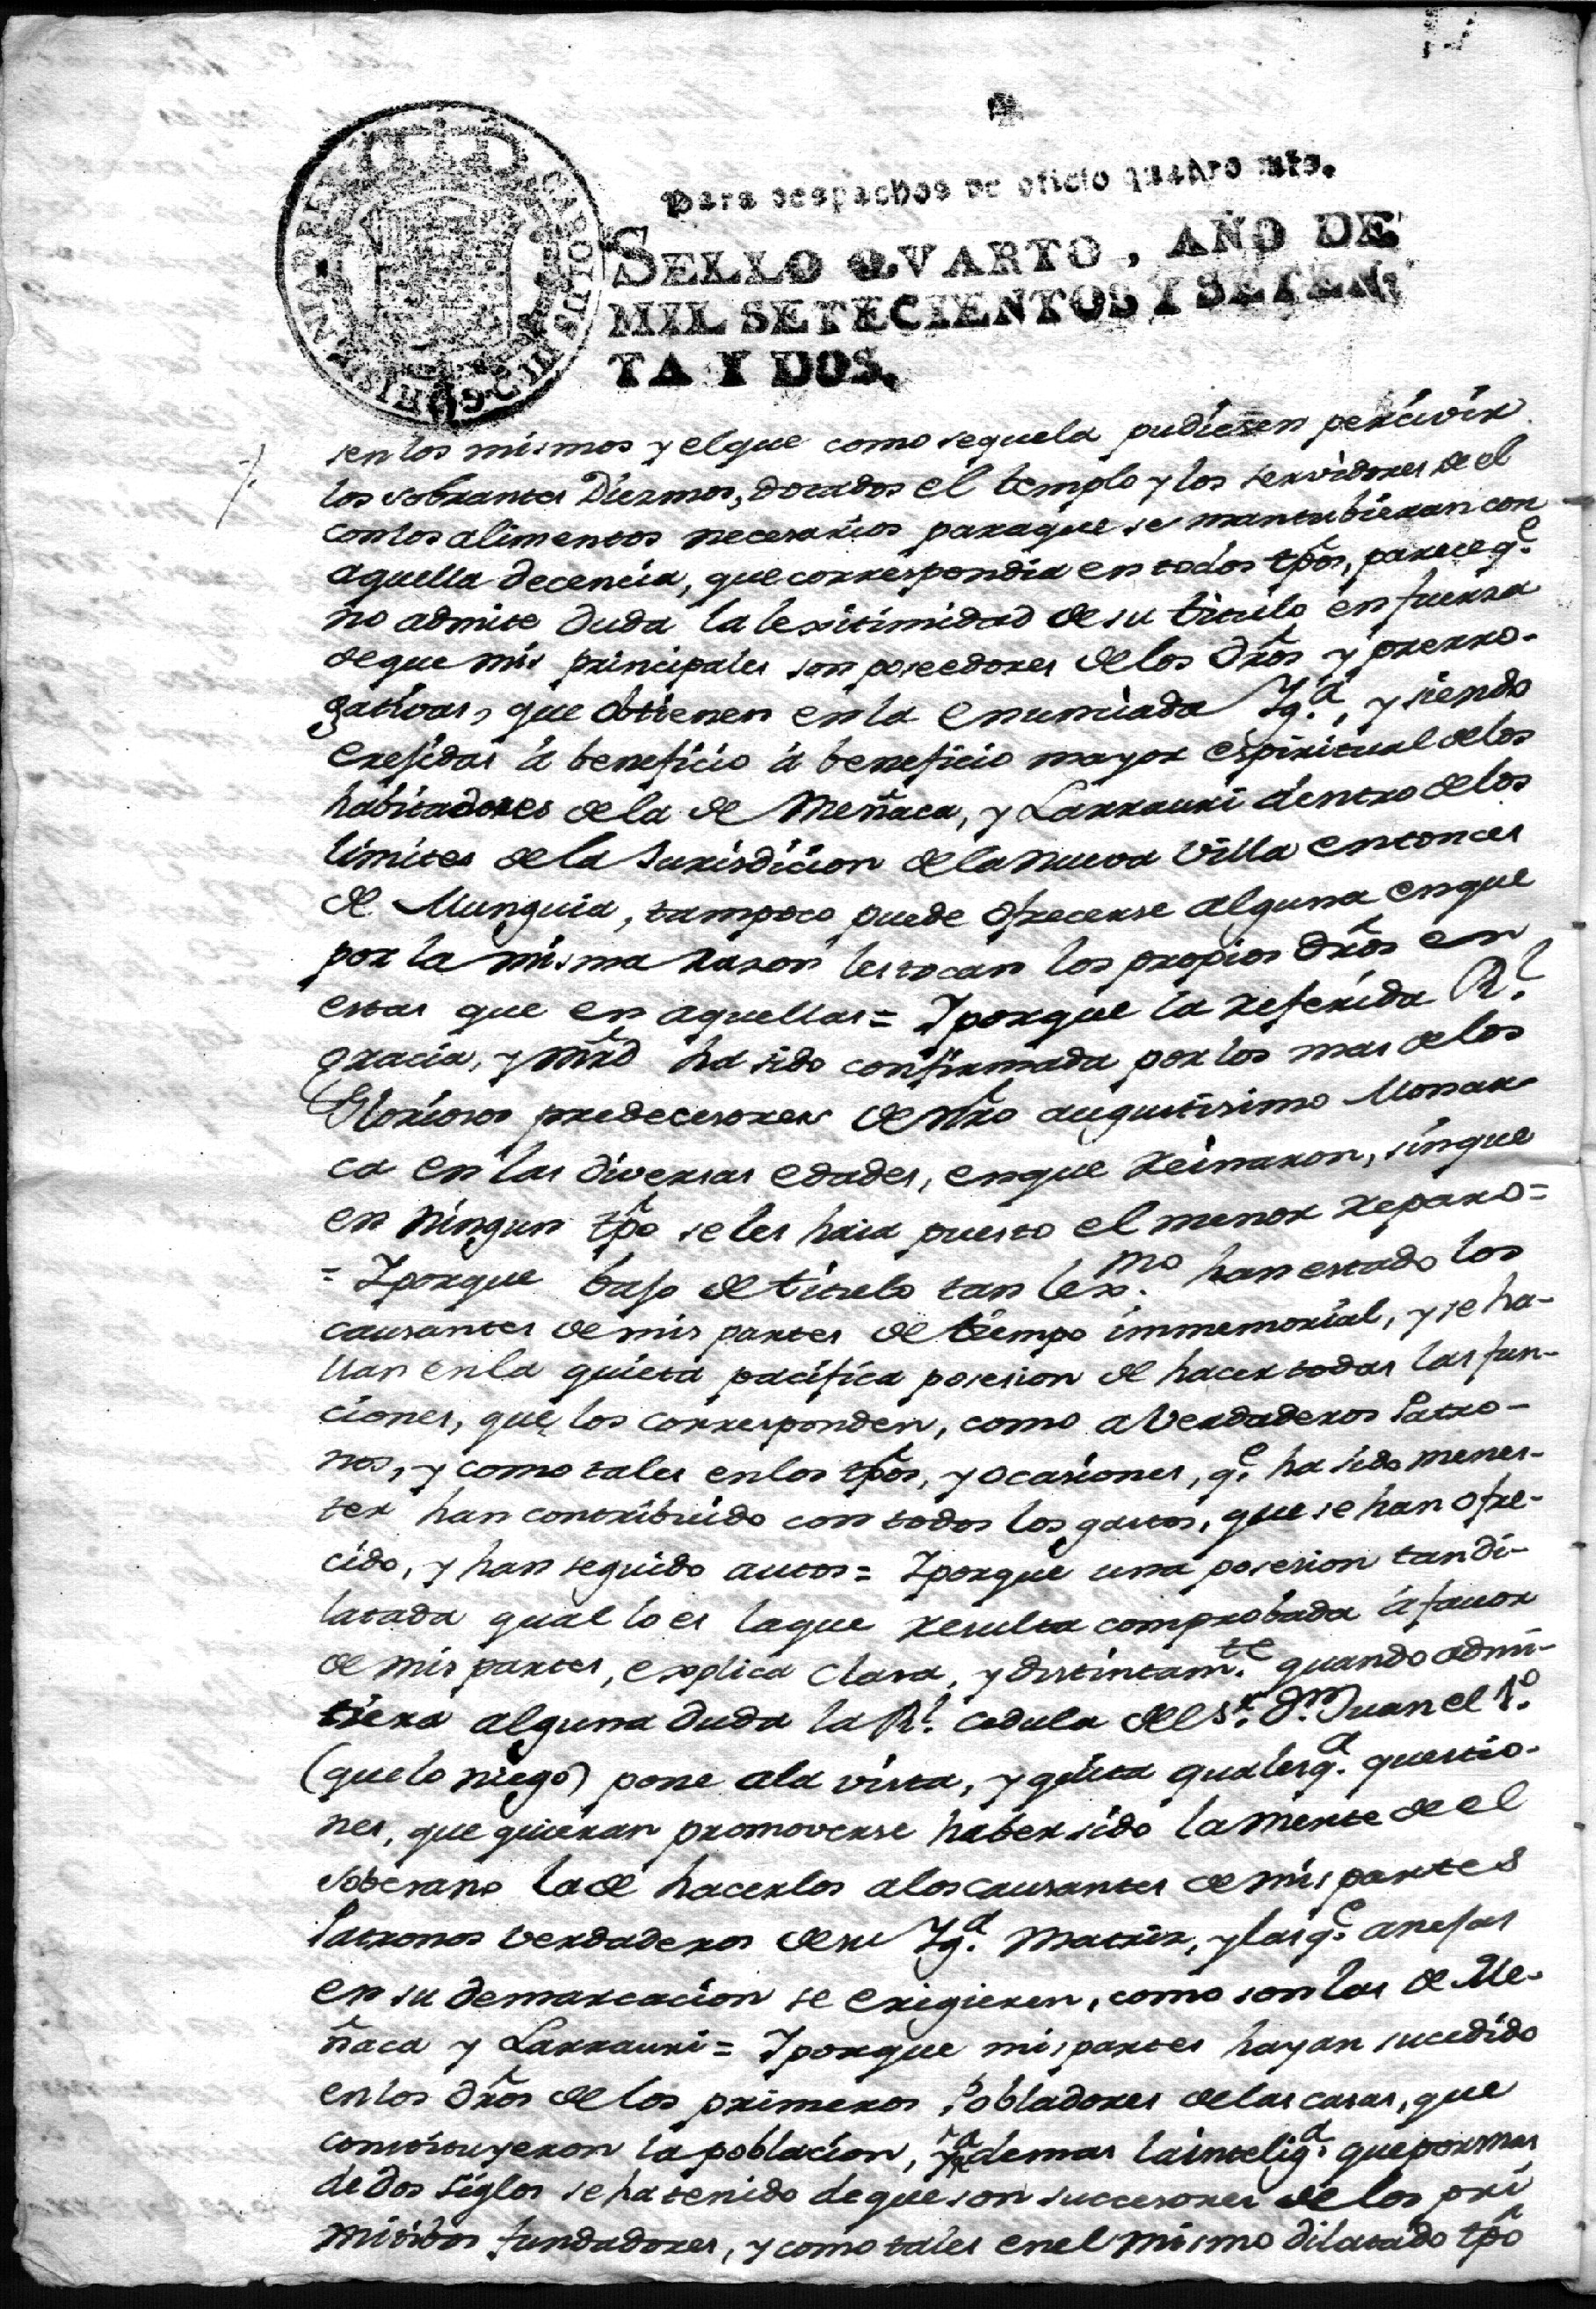 Para despachos de oficio quatro mrs.
SELLO QVARTO, AÑO DE
MIL SETECIENTOS Y SETEN,
TA Y DOS.
CAROLUS III D G HISPANIAR REX
sen los mismos y el que como sequela pudiesen percivir
los sobrantes Diezmos, dotados el templo y los servidores de el
con los alimentos necesarios para que se mantubieran con
aquella decencia, que correspondia en todos tp̃os, parece q.e
no admite duda la lexitimidad de su titulo en fuerza
de que mis principales son poseedores de los Dr̃os y prerro-
gativas, que obtienen en la enunciada Yg.a, y siendo
erefidas á beneficio á beneficio mayor espiritual de los
habitadores de la de Meñaca, y Larrauri dentro de los
limites de la Jurisdicion de la nueva Villa entonces
de Munguia, tampoco puede ofrecerse alguna en que
por la misma razon les tocan los propios dr̃os en
estas que en aquellas = Y porque la referida R.l
gracia, y mr̃d ha sido confirmada por los mas de los
Gloriosos predecesores de nr̃o augustisimo Monar-
ca en las diversas edades, en que reinaron, sin que
en ningun tp̃o se les haia puesto el menor reparo =
= Y porque bajo de titulo tan lex.mo han estado los
causantes de mis partes de tiempo immemorial, y se ha-
llan en la quieta pacifica posesion de hacer todas las fun-
ciones, que los corresponden, como a Verdaderos Patro-
nos, y como tales en los tp̃os, y ocasiones, q.e ha sido menes-
ter han contribuido con todos los gastos, que se han ofre-
cido, y han seguido autos = Y porque una posesion tan di-
latada qual lo es la que resulta comprobada á favor
de mis partes, explica clara, y distintam.te quando admi-
tiera alguna duda la R.l cedula del S.r D.n Juan el 1.o
(que lo niego) pone a la vista, y quita qualesq.a questio-
nes, que quieran promoverse haber sido la mente de el
soberano la de hacerlos a los causantes de mis partes
Patronos verdaderos de su Yg.a Matriz, y las q.e anejas
en su demarcacion se erigieren, como son las de Me-
ñaca y Larrauri = Y porque mis partes hayan sucedido
en los dr̃os de los primeros Pobladores de las casas, que
constituyeron la poblacion, ademas la intelig.a que por mas
de dos siglos se ha tenido de que son succesores de los pri
mitibos fundadores, y como tales en el mismo dilatado tp̃o